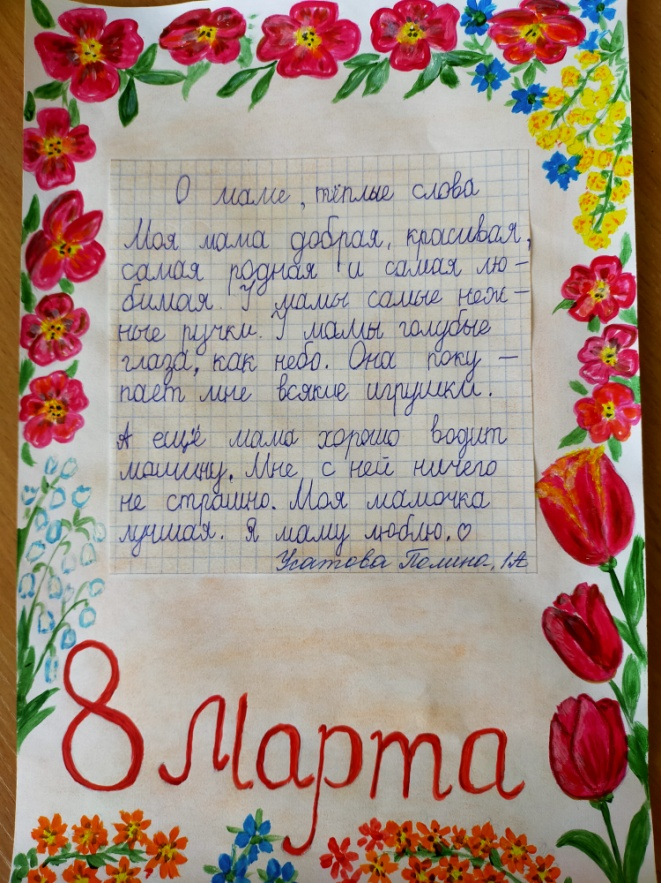 О маме, тёплые слова
Моя мама добрая, красивая,
самая родная и самая лю-
бимая. У мамы самые неж-
ные ручки. У мамы голубые
глаза, как небо. Она поку-
пает мне всякие игрушки.
А ещё мама хорошо водит
машину. Мне с ней ничего
не страшно. Моя мамочка
лучшая. Я маму люблю. ♡
Усатова Полина, 1А
8 Марта